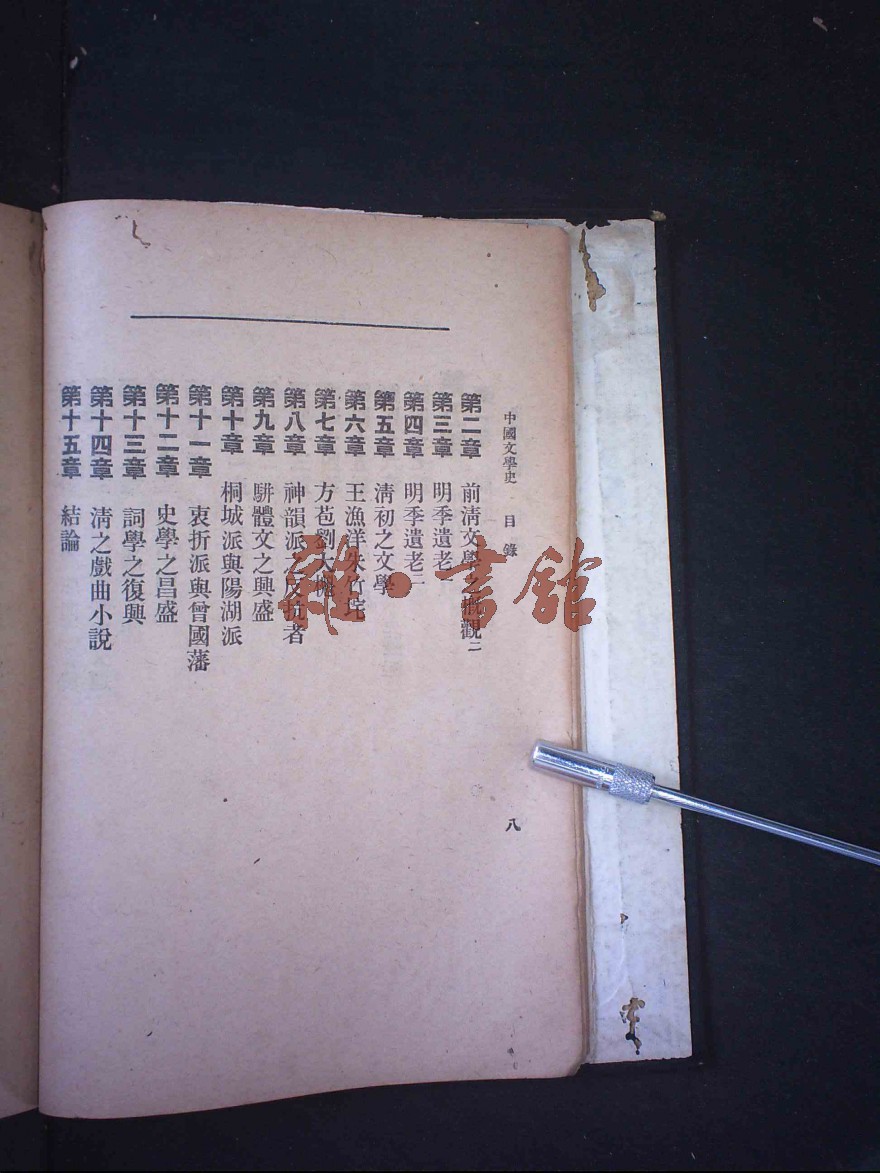 中國文學史 目錄 八
第二章 前淸文學之概觀二
第三章 明季遺老一
第四章 明季遺老二
第五章 淸初之文學
第六章 王漁洋朱竹垞
第七章 方苞劉大櫆
第八章 神韻派之反抗者
第九章 駢體文之興盛
第十章 桐城派與陽湖派
第十一章 衷折派與曾國藩
第十二章 史學之昌盛
第十三章 詞學之復興
第十四章 淸之戲曲小說
第十五章 結論
雜·書館